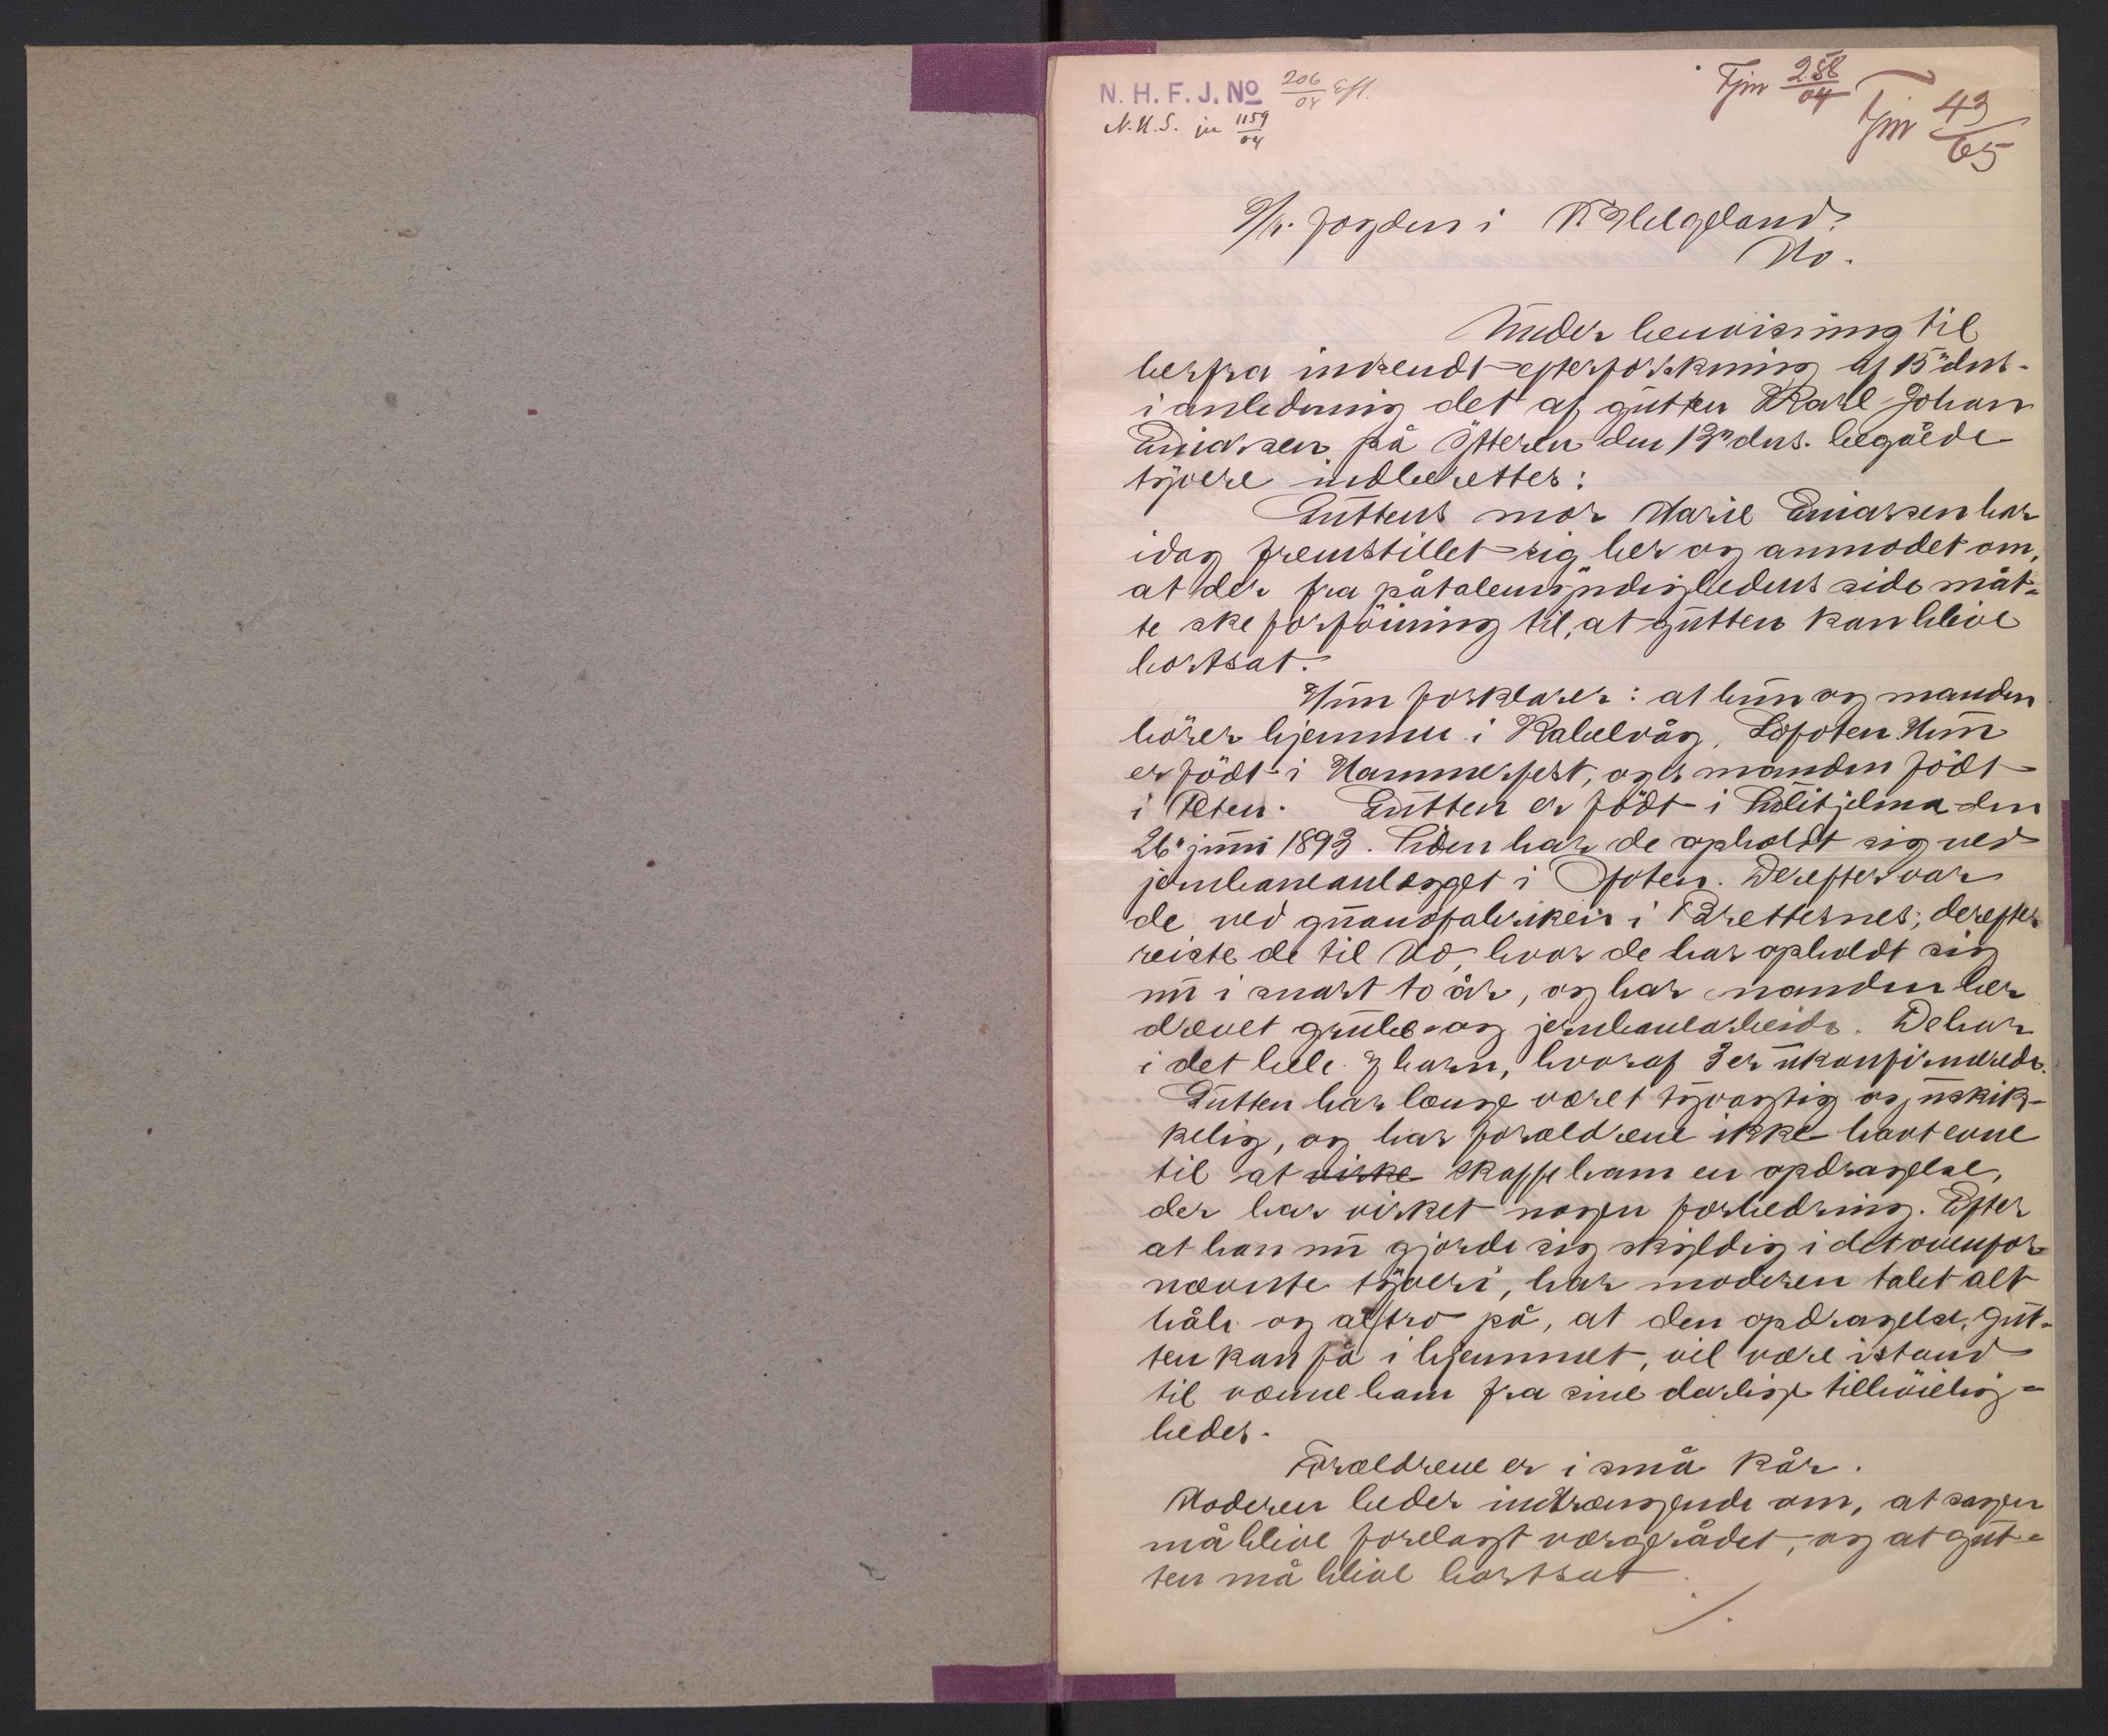 N. H. F. J. No 206/04 Eft.
N.H.S. jn 1159/04
Fjm 258/04
Fjm 43/05
Hr. fogden i N Helgeland.
Mo.
Under henvisning til
herfra indsendt efterforskning af 15de ds.
i anledning det af gutten Karl Johan
Einarsen på Ytteren den 13de ds. begåede
tyveri indberettes:
Guttens mor Marie Einarsen har
idag fremstillet sig her og anmodet om,
at der fra påtalemyndighedens side måt-
te ske forföining til, at gutten kan blive
bortsat.
Hun forklarer: at hun og manden
hörer hjemme i Kabelvåg, Lofoten. Hun
er födt i Hammerfest, og er manden födt
i Alten. Gutten er födt i Sulitjelma den
26de juni 1893. Siden har de opholdt sig ved
jernbaneanlægget i Ofoten. Derefter var
de ved guanofabriken i Brettesnes; derefter
reiste de til Mo, hvor de har opholdt sig
nu i snart to år, og har manden her
drevet grube- og jernbanearbeide. De har
i det hele 7 barn, hvoraf 3 er ukonfirmerede.
Gutten har længe været tyvagtig og uskik-
kelig, og har forældrene ikke havt evne
til at virke skaffe ham en opdragelse,
der har virket nogen forbedring. Efter
at han nu gjorde sig skyldig i det ovenfor
nævnte tyveri, har moderen tabt alt
håb og al tro på, at den opdragelse, gut-
ten kan få i hjemmet, vil være istand
til vænne ham fra sine darlige tilböielig-
heder.
Forældrene er i små kår.
Moderen beder indtrængende om, at sagen
må blive forelagt værgerådet, og at gut-
ten må blive bortsat.
./.